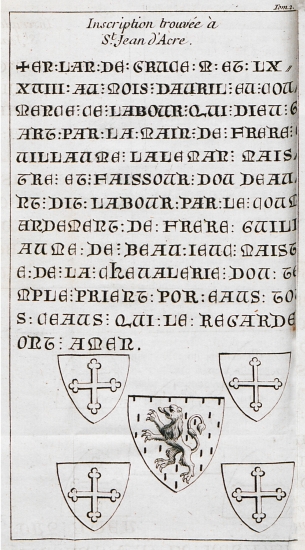 Tom. 2.
Inscription trouvée à
St. Jean d'Acre.
+EN:LAN:DE:GRUCE:M:ET:LX:
XVIII:AU:MOIS:DAURIL:EU:COU
MENCE:CE:LABOUR:QUI:DIEU:G
ART:PAR:LA:MAIN:DE:FRERE:
UILLAUME:LALEMAN:MAIS:
TRE:ET:FAISSOUR:DOU:DEAU
NT:DIT:LABOUR:PAR:LE:COUM
ANDEMENT:DE:FRERE:GUILI
AUME:DE:BEAU:IEUC:MAIST
E:DE:LA:CHEUALERIE:DOU:TE
MPLE:PRIENT:POR:EAUS:TO
S:CEAUS:QUI:LE:REGARDE
ONT:AMEN.